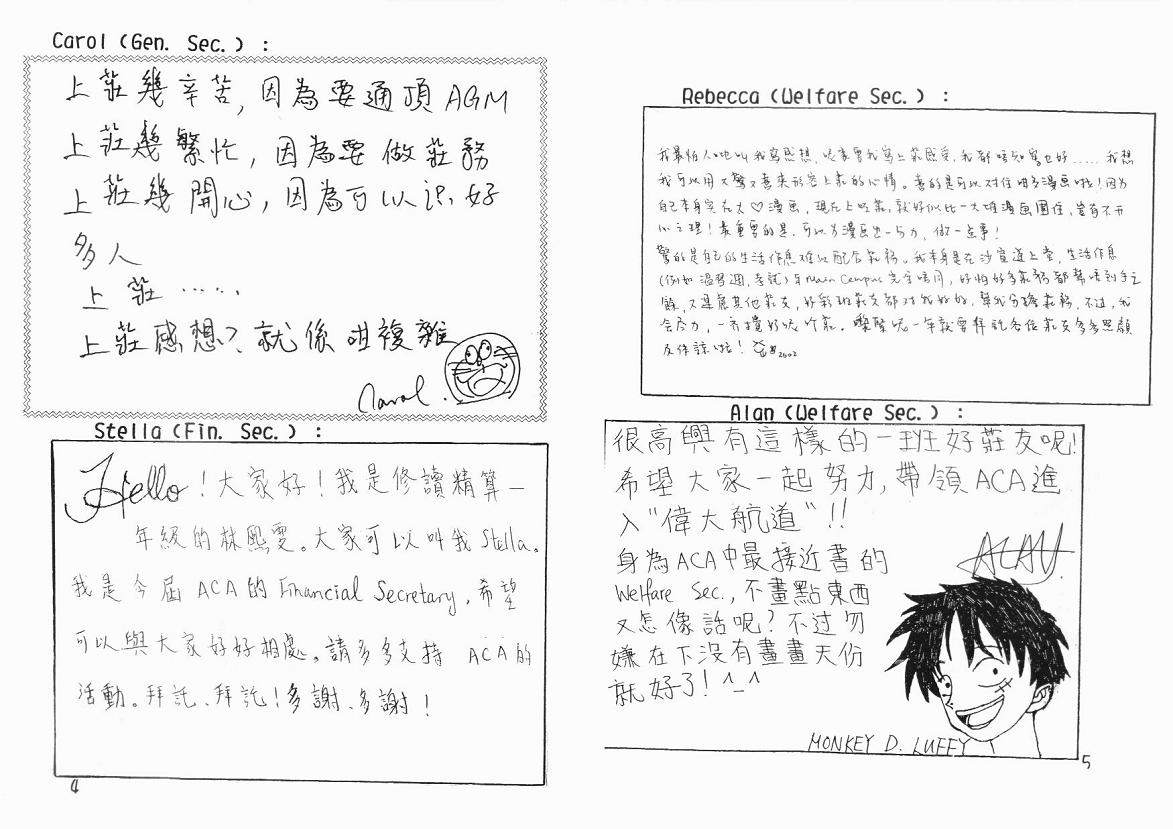 Carol (Gen. Sec.) :
上莊幾辛苦, 因為要通頂 AGM
上莊幾繁忙, 因為要做莊務
上莊幾開心, 因為可以識好
多人
上莊 ......
上莊感想? 就係咁複雜
Carol.
Stella (Fin. Sec.) :
Hello ! 大家好! 我是修讀精算一
年級的林熙雯。大家可以叫我 Stella。
我是今屆 ACA 的 Financial Secretary, 希望
可以與大家好好相處。請多多支持 ACA 的
活動。拜託、拜託! 多謝、多謝!
4
Rebecca (Welfare Sec.) :
我最怕人地叫我寫感想, 大家要我寫上莊感受, 我都唔知寫乜好..... 我想
我可以用又驚又喜來形容上莊的心情。喜的是可以對住咁多漫畫啦! 因為
自己本身實在太♡漫畫, 現在上咗莊, 就好似比一大堆漫畫圍住, 豈有不開
心之理! 最重要的是, 可以為漫畫出一分力, 做一点事!
驚的是自己的生活作息難以配合莊務。我本身是在沙宣道上堂, 生活作息
(例如溫習週, 考試) 与 Main Campus 完全唔同, 好怕好多莊務都幫唔到手之
餘, 又連累其他莊友, 好彩班莊友都对我好好, 幫我分擔莊務。不过, 我
会尽力, 一齊攪好呢個莊。嚟緊呢一年就要拜託各位莊友多多照顧
及体諒啦!
2002
Alan (Welfare Sec.) :
很高興有這樣的一班好莊友呢!
希望大家一起努力, 帶領 ACA 進
入"偉大航道"!!
身為 ACA 中最接近書的
Welfare Sec., 不畫點東西
又怎像話呢? 不过勿
嫌在下沒有畫畫天份
就好了! ^_^
ALAN.
MONKEY D. LUFFY
5